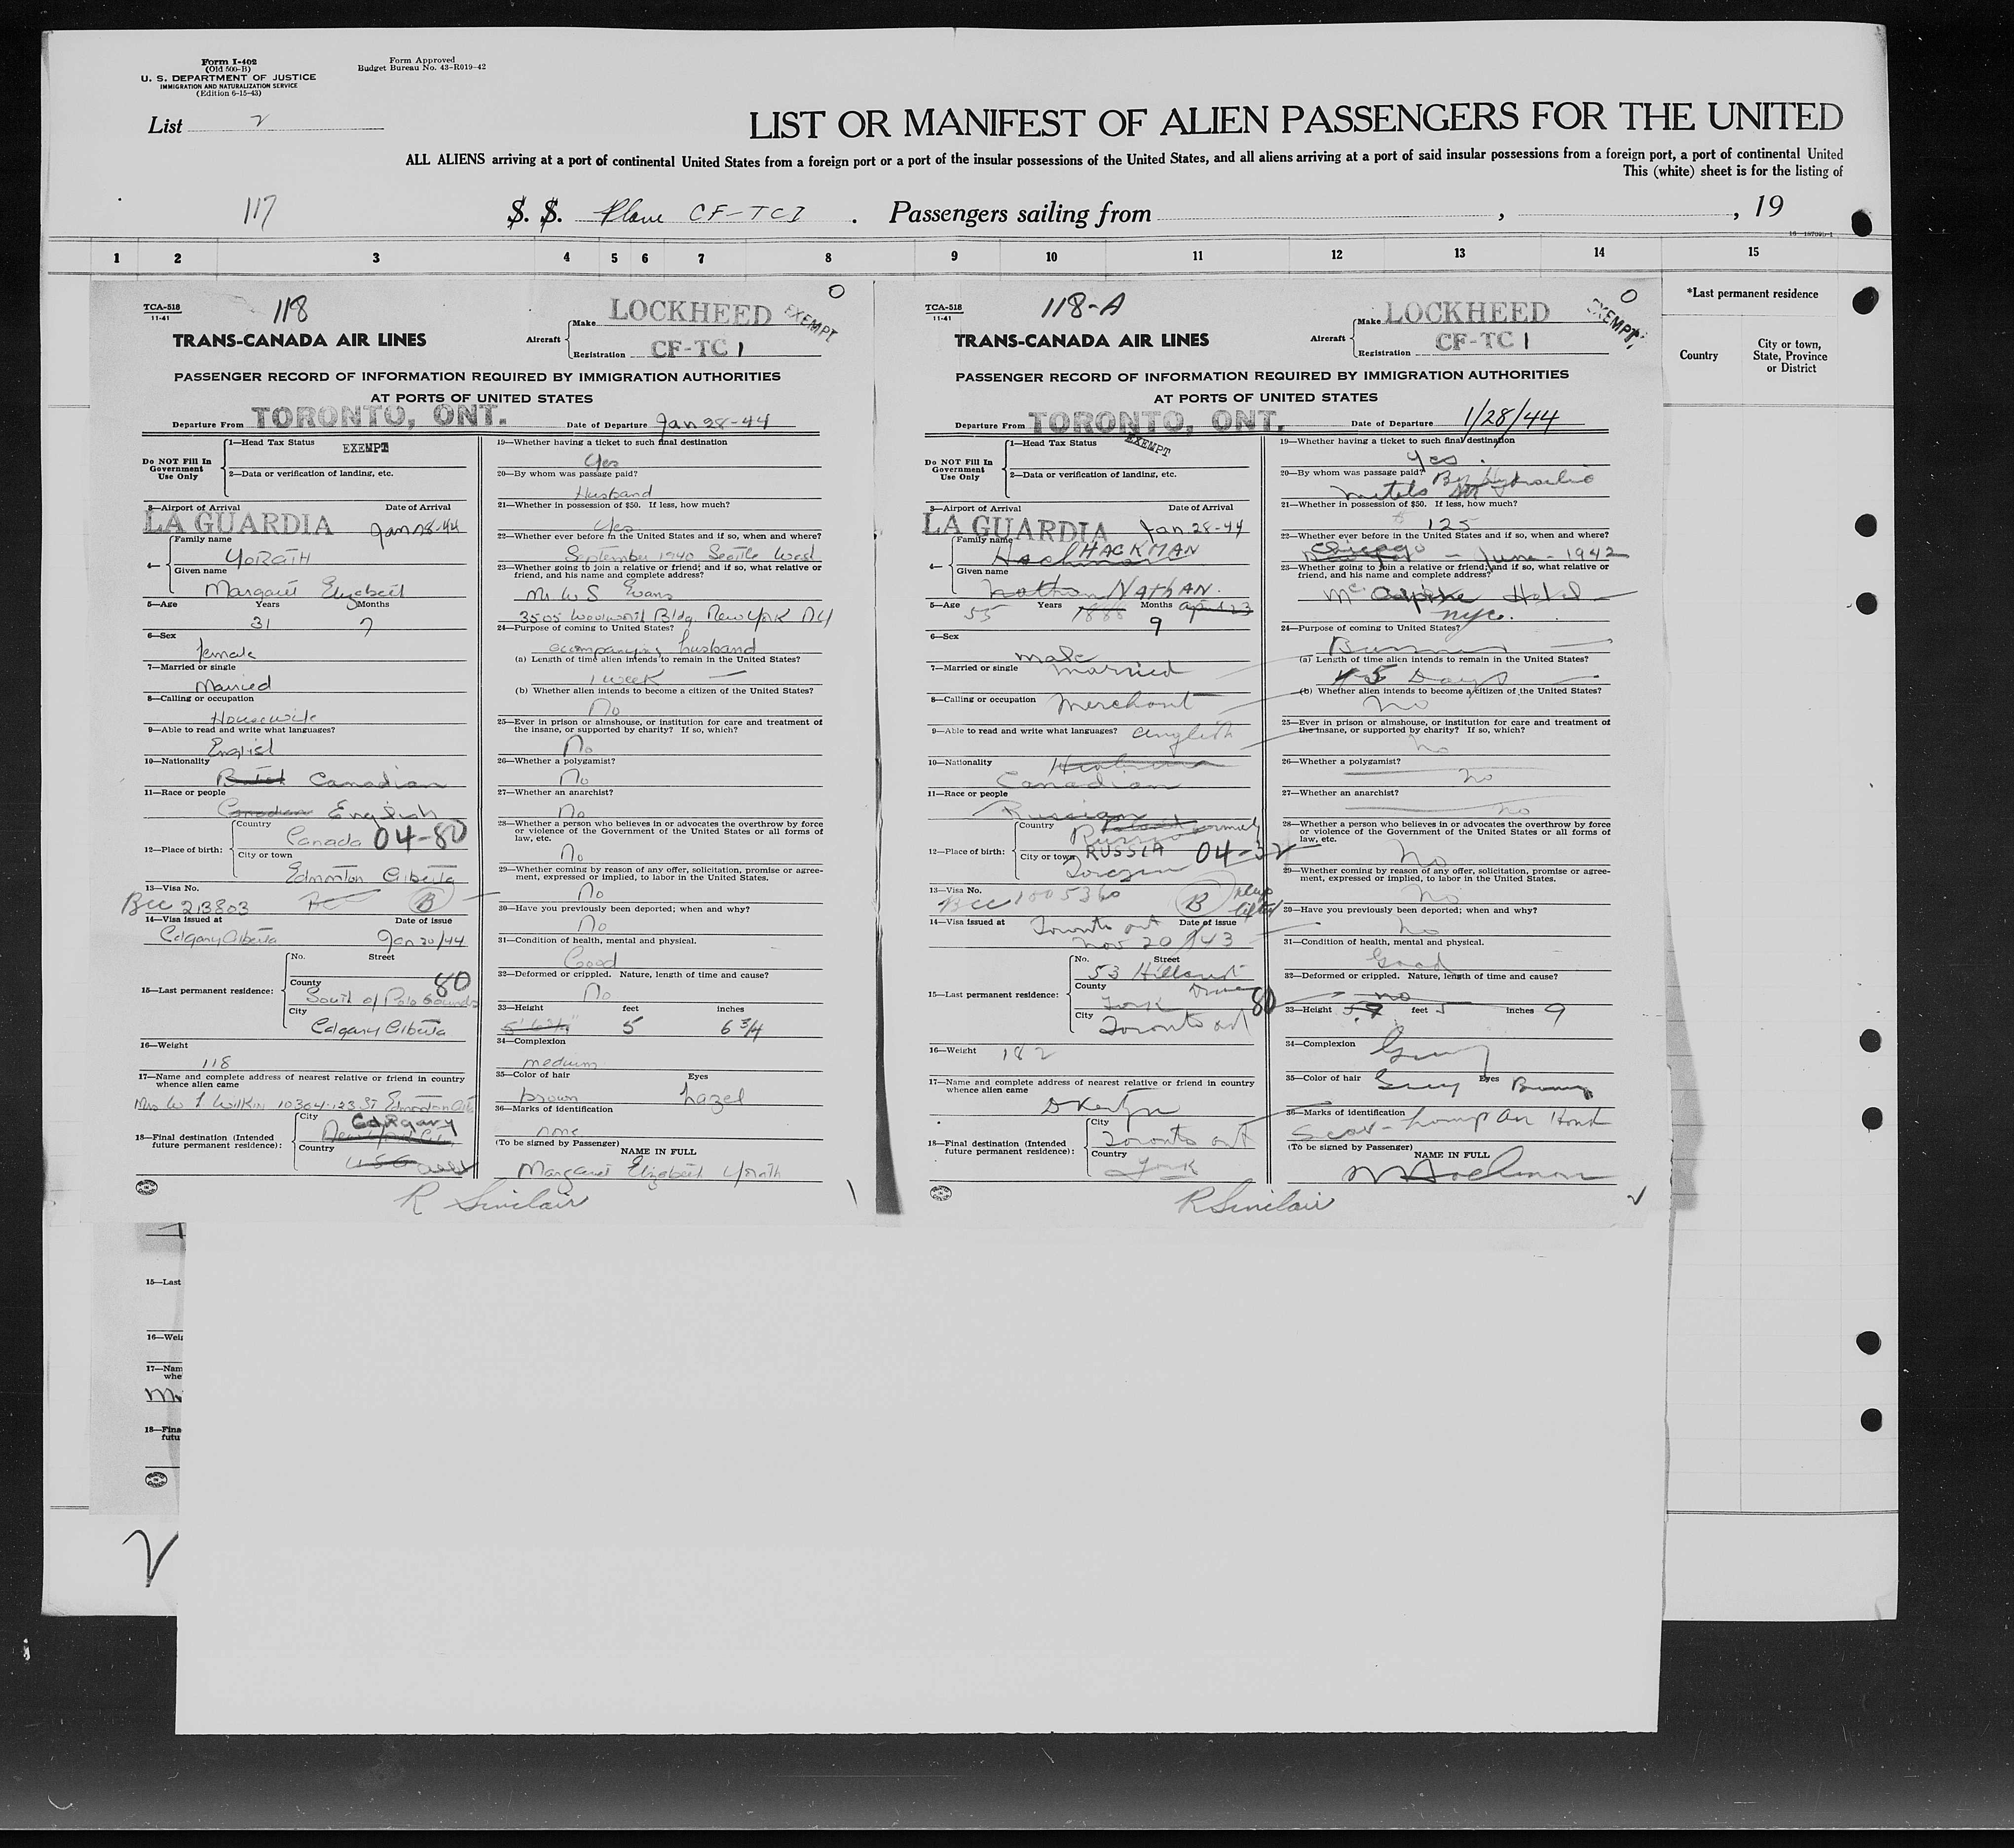 Form I-402
(Old 500-B)
U. S. DEPARTMENT OF JUSTICE
IMMIGRATION AND NATURALIZATION SERVICE
(Edition 6-15-43)
Form Approved
Budget Bureau No. 43-R019-42
List 2
LIST OR MANIFEST OF ALIEN PASSENGERS FOR THE UNITED
ALL ALIENS arriving at a port of continental United States from a foreign port or a port of the insular possessions of the United States, and all aliens arriving at a port of said insular possessions from a foreign port, a port of continental United
This (white) sheet is for the listing of
117 S. S. Plane CF-TCI . Passengers sailing from , , 19
1 2 3 4 5 6 7 8 9 10 11 12 13 14 15
*Last permanent residence
Country
City or town, State, Province or District
TCA-518
11-41
118
TRANS-CANADA AIR LINES
Aircraft
Make LOCKHEED
EXEMPT
Registration CF-TC 1
PASSENGER RECORD OF INFORMATION REQUIRED BY IMMIGRATION AUTHORITIES
AT PORTS OF UNITED STATES
Departure From TORONTO, ONT. Date of Departure Jan 28-44
Do NOT Fill In Government Use Only
1—Head Tax Status EXEMPT
2—Data or verification of landing, etc.
3—Airport of Arrival Date of Arrival
LA GUARDIA Jan 28-44
4—
Family name
YORATH
Given name
Margaret Elizabeth
5—Age Years Months
31 7
6—Sex
female
7—Married or single
Married
8—Calling or occupation
Housewife
9—Able to read and write what languages?
English
10—Nationality
Canadian
11—Race or people
Canadian English
12—Place of birth:
Country
Canada 04-80
City or town
Edmonton Alberta
13—Visa No.
BCC 213803 B
14—Visa issued at Date of issue
Calgary Alberta Jan 20/44
15—Last permanent residence:
No. Street
County 80
South of Polo Grounds
City
Calgary Alberta
16—Weight
118
17—Name and complete address of nearest relative or friend in country whence alien came
Mrs W L Wilkin 10304-123 St Edmonton Alta
18—Final destination (Intended future permanent residence):
City
Calgary
Country
19—Whether having a ticket to such final destination
Yes
20—By whom was passage paid?
Husband
21—Whether in possession of $50. If less, how much?
Yes
22—Whether ever before in the United States and if so, when and where?
September 1940 Seattle Wash
23—Whether going to join a relative or friend; and if so, what relative or friend, and his name and complete address?
Mr W S Evans
3505 Woolworth Bldg. New York NY
24—Purpose of coming to United States?
accompanying husband
(a) Length of time alien intends to remain in the United States?
1 week
(b) Whether alien intends to become a citizen of the United States?
No
25—Ever in prison or almshouse, or institution for care and treatment of the insane, or supported by charity? If so, which?
No
26—Whether a polygamist?
No
27—Whether an anarchist?
No
28—Whether a person who believes in or advocates the overthrow by force or violence of the Government of the United States or all forms of law, etc.
No
29—Whether coming by reason of any offer, solicitation, promise or agreement, expressed or implied, to labor in the United States.
No
30—Have you previously been deported; when and why?
No
31—Condition of health, mental and physical.
Good
32—Deformed or crippled. Nature, length of time and cause?
No
33—Height feet inches
5 6 3/4
34—Complexion
medium
35—Color of hair Eyes
brown hazel
36—Marks of identification
none
(To be signed by Passenger) NAME IN FULL
Margaret Elizabeth Yorath
R Sinclair
TCA-518
11-41
118-A
TRANS-CANADA AIR LINES
Aircraft
Make LOCKHEED
EXEMPT
Registration CF-TC 1
PASSENGER RECORD OF INFORMATION REQUIRED BY IMMIGRATION AUTHORITIES
AT PORTS OF UNITED STATES
Departure From TORONTO, ONT. Date of Departure 1/28/44
Do NOT Fill In Government Use Only
1—Head Tax Status EXEMPT
2—Data or verification of landing, etc.
3—Airport of Arrival Date of Arrival
LA GUARDIA Jan 28-44
4—
Family name
HACKMAN
Given name
Nathan NATHAN.
5—Age Years Months
55 9
6—Sex
male
7—Married or single
married
8—Calling or occupation
merchant
9—Able to read and write what languages? english
10—Nationality
Canadian
11—Race or people
Russian
12—Place of birth:
Country
City or town RUSSIA 04-32
13—Visa No.
BCC 1005360 B
14—Visa issued at Date of issue
Toronto ont
Nov 20/43
15—Last permanent residence:
No. Street
53 Hillcrest Drive
County
York 80
City
Toronto ont
16—Weight 182
17—Name and complete address of nearest relative or friend in country whence alien came
18—Final destination (Intended future permanent residence):
City
Toronto ont
Country
York
19—Whether having a ticket to such final destination
Yes.
20—By whom was passage paid?
By Hydraulic
metals
21—Whether in possession of $50. If less, how much?
$ 125
22—Whether ever before in the United States and if so, when and where?
Chicago - June - 1942
23—Whether going to join a relative or friend; and if so, what relative or friend, and his name and complete address?
Mc Alpine Hotel
nyc.
24—Purpose of coming to United States?
Business
(a) Length of time alien intends to remain in the United States?
5 Days
(b) Whether alien intends to become a citizen of the United States?
no
25—Ever in prison or almshouse, or institution for care and treatment of the insane, or supported by charity? If so, which?
no
26—Whether a polygamist?
no
27—Whether an anarchist?
no
28—Whether a person who believes in or advocates the overthrow by force or violence of the Government of the United States or all forms of law, etc.
no
29—Whether coming by reason of any offer, solicitation, promise or agreement, expressed or implied, to labor in the United States.
no
30—Have you previously been deported; when and why?
no
31—Condition of health, mental and physical.
Good
32—Deformed or crippled. Nature, length of time and cause?
no
33—Height feet 5 inches 9
34—Complexion
35—Color of hair Grey Eyes Brown
36—Marks of identification
Scar - lump on Hand
(To be signed by Passenger) NAME IN FULL
R Sinclair
15—Last
16—Wei
17—Nam
whe
18—Fina
futu